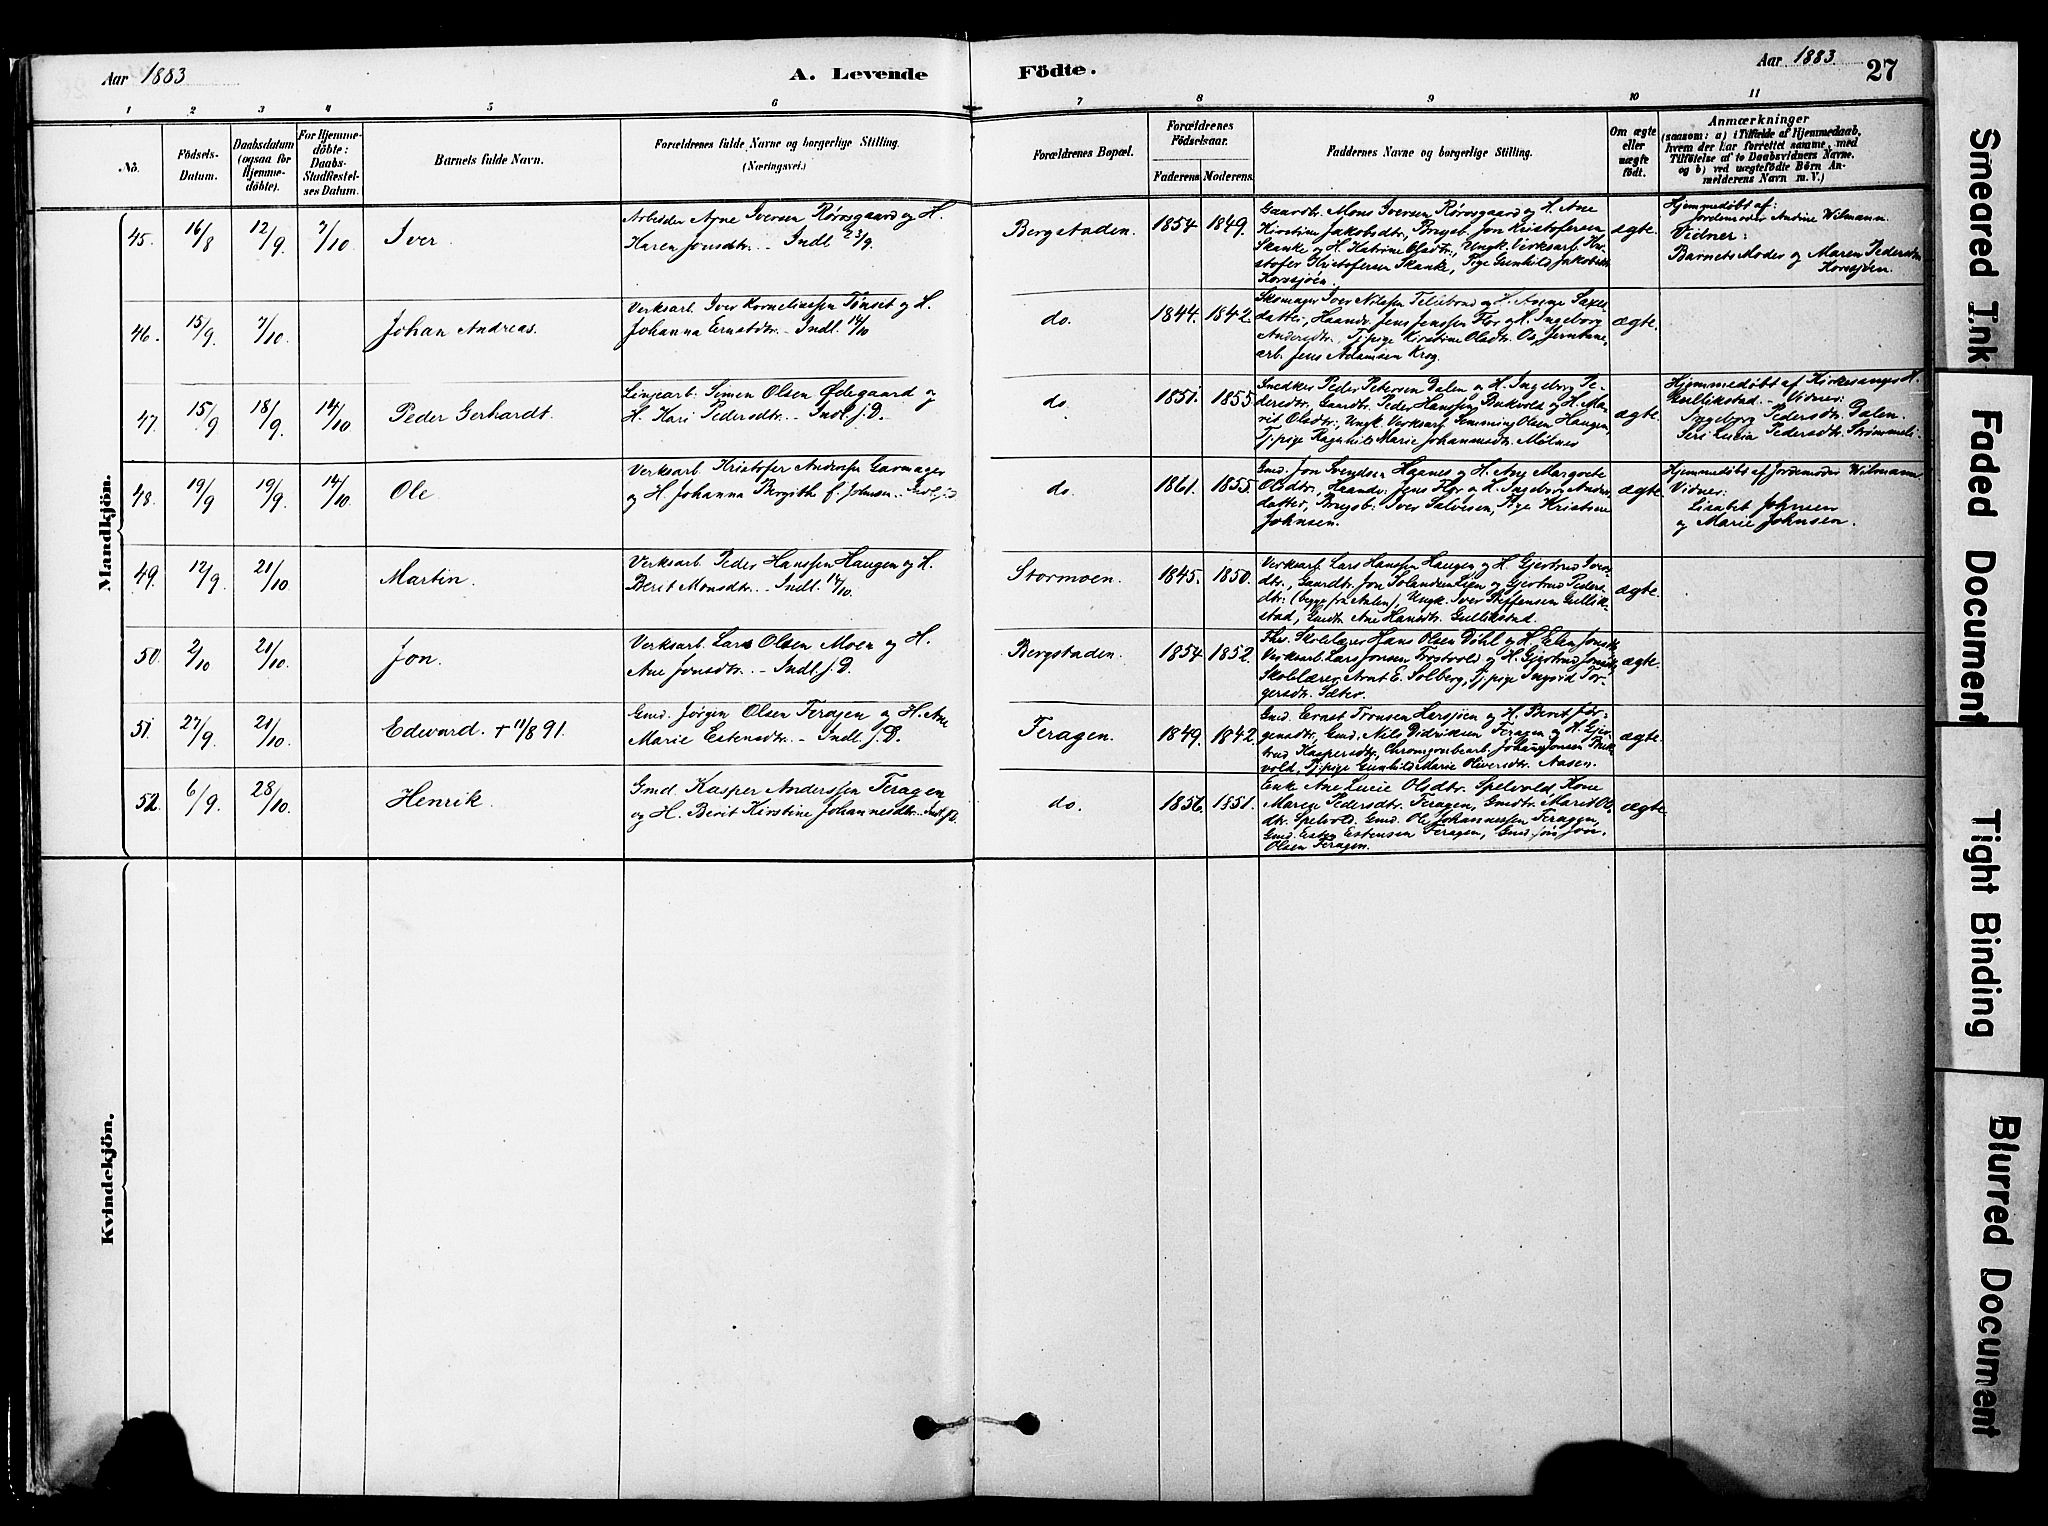 Aar 1883
A. Levende Födte.
Aar 1883.
27
1 2 3 4 5 6 7 8 9 10 11
No.
Födsels-
Datum.
Daabsdatum
(ogsaa for
Hjemme-
döbte).
For Hjemme-
döbte:
Daabs-
Stadfæstel-
ses Datum.
Barnets fulde Navn.
Forældrenes fulde Navne og borgerlige Stilling.
(Næringsvei.)
Forældrenes Bopæl.
Forældrenes
Födselsaar.
Faderens. Moderens.
Faddernes Navne og borgerlige Stilling.
Om ægte
eller
uægte
födt.
Anmærkninger
(saasom: a) i Tilfælde af Hjemmedaab,
hvem der har forrettet samme, med
Tilföielse af to Daabsvidners Navne.
og b) ved uægtefödte Börn An-
melderens Navn m. V.)
Mandkjön.
45. 16/8 12/9 7/10 Iver.
Arbeider Arne Iversen Rørosgaard og H.
Karen Jonsdtr. - Indl. 23/9.
Bergstaden. 1854. 1849.
Gaardbr. Mons Iversen Rørosgaard og H. Ane
Kirstine Jakobsdtr., Bergsb. Jon Kristofersen
Skanke og H. Katrine Olsdtr., Ungk. Verksarb. Kri-
stofer Kristofersen Skanke, Pige Gunhild Jakobsdtr.
Korssjøen.
ægte.
Hjemmedøbt af:
Jordemoder Andine Wilmann.
Vidner:
Barnets Moder og Maren Pedersdtr.
Korssjøen.
46. 15/9 7/10 Johan Andreas.
Verksarb. Iver Korneliussen Tønset og H.
Johanna Ernstdtr. - Indl. 14/10
do. 1844. 1842.
Skomager Iver Nilssen
datter, Haandv. Jens Jenssen Flor og H. Ingeborg
Andersdtr., Tj.pige Kirstine Olsdtr. Os,
arb. Jens Adamsen Krog.
ægte.
47. 15/9 18/9 14/10 Peder Gerhardt.
Linjearb. Simen Olsen Ødegaard og
H. Kari Pedersdtr. - Indl. s. D.
do. 1851. 1855.
Snedker Peder Petersen Dalen og H. Ingeborg Pe-
dersdtr., Gaardbr. Peder Hanssen Bukvold og H. Ma-
rit Olsdtr., Ungk. Verksarb. Hemming Olsen Haugen,
Tj.pige Ragnhild Marie Johannesdtr. Mølnes
ægte.
Hjemmedøbt af Kirkesanger H.
Gullikstad. - Vidner:
Ingeborg Pedersdtr. Dalen.
Seri Lucia Pedersdtr. Strømmeli.
48. 19/9 19/9 14/10 Ole
Verksarb. Kristofer Anderssen Garmager
og H. Johanna Bergith f. Johnsen. - Indl. s. D.
do. 1861. 1855.
Gmd. Jon Svendsen Haanes og H. Ane Margrete
Olsdtr., Haandv. Jens Flor og H. Ingeborg Anders-
datter, Bergsb. Iver Salvesen, Pige Kristine
Johnsen.
ægte.
Hjemmedøbt af Jordemoder Wilmann.
Vidner:
Lisabet Johnsen
og Marie Johnsen.
49. 12/9 21/10 Martin.
Verksarb. Peder Hanssen Haugen og H.
Berit Monsdtr. - Indl. 14/10.
Stormoen. 1845. 1850.
Verksarb. Lars Hanssen Haugen og H. Gjertrud Ivers-
dtr., Gaardbr. Jon Lien og Gjertrud Peders-
dtr. (begge fra Aalen), Ungk. Iver Steffensen Gullik-
stad, Gmdtr. Ane Hansdtr. Gullikstad.
ægte.
50. 2/10 21/10 Jon.
Verksarb. Lars Olsen Moen og H.
Ane Jonsdtr. - Indl. s. D.
Bergstaden. 1854. 1852.
Fhv. Skolelærer Hans Olsen Døhl og H. Elen Jonsdtr.,
Verksarb. Lars Jonsen Trostvold og H. Gjertrud Jonsdtr.,
Skolelærer Arnt E. Solberg, Tj.pige Ingrid Tor-
gersdtr. Sæter.
ægte.
51. 27/9 21/10 Edvard. + 11/8 91.
Gmd. Jørgen Olsen Feragen og H. Ane
Marie Estensdtr. - Indl. s. D.
Feragen. 1849. 1842.
Gmd. Ernst Tronsen Hersjøen og H. Berit Jør-
gensdtr. Gmd. Nils Didriksen Feragen og H. Gjer-
trud Kaspersdtr., Chromgrubearb. Johan Jonsen Buk-
vold, Tj.pige Gunhild Marie Oliversdtr. Aasen.
ægte.
52. 6/9. 28/10. Henrik.
Gmd. Kasper Anderssen Feragen
og H. Berit Kirstine Johannesdtr. Indl. s. D.
do. 1856. 1851.
Enke Ane Lucie Olsdtr. Spelvold, Kone
Maren Pedersdtr. Feragen, Gmdtr. Marit Ols-
dtr. Spelvold. Gmd. Ole Johannessen Feragen,
Gmd. Esten Estensen Feragen, Gmd. søn Jon
Olsen Feragen.
ægte
Kvindekjön.
Smeared Ink
Faded Document
Tight Binding
Blurred Document